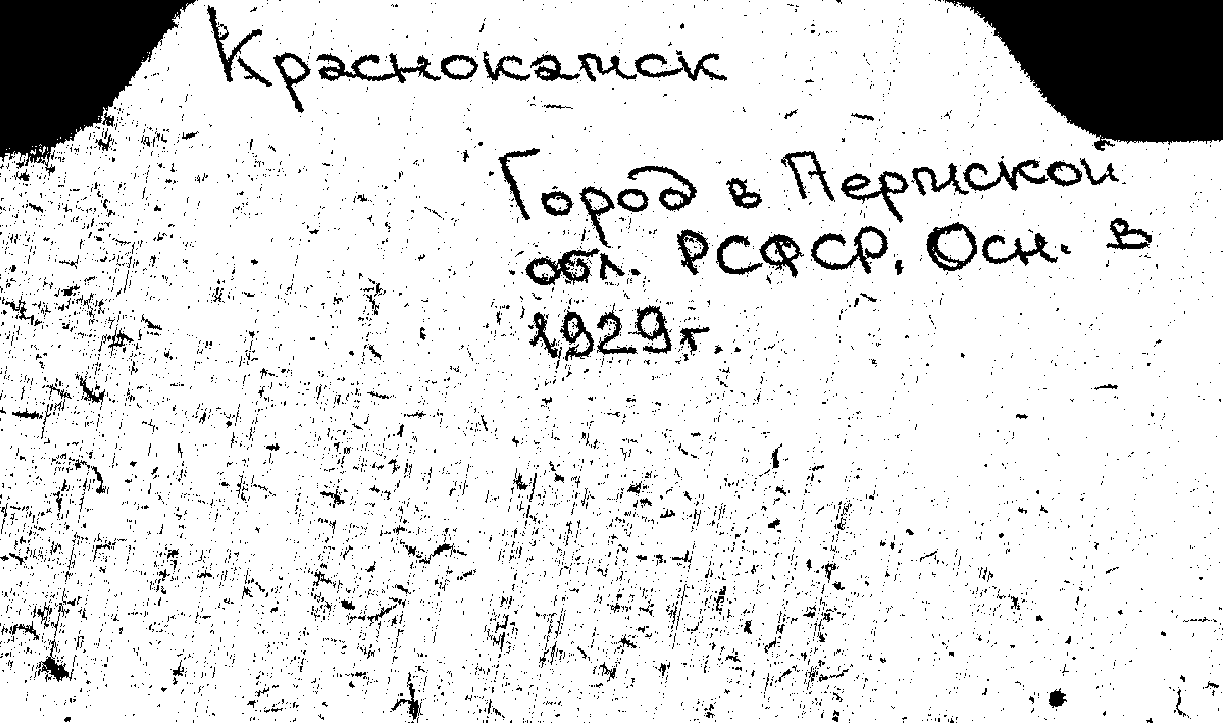 Краснокамск
Город в Пермской
обл. РСФСР. Осн. в
1929г.